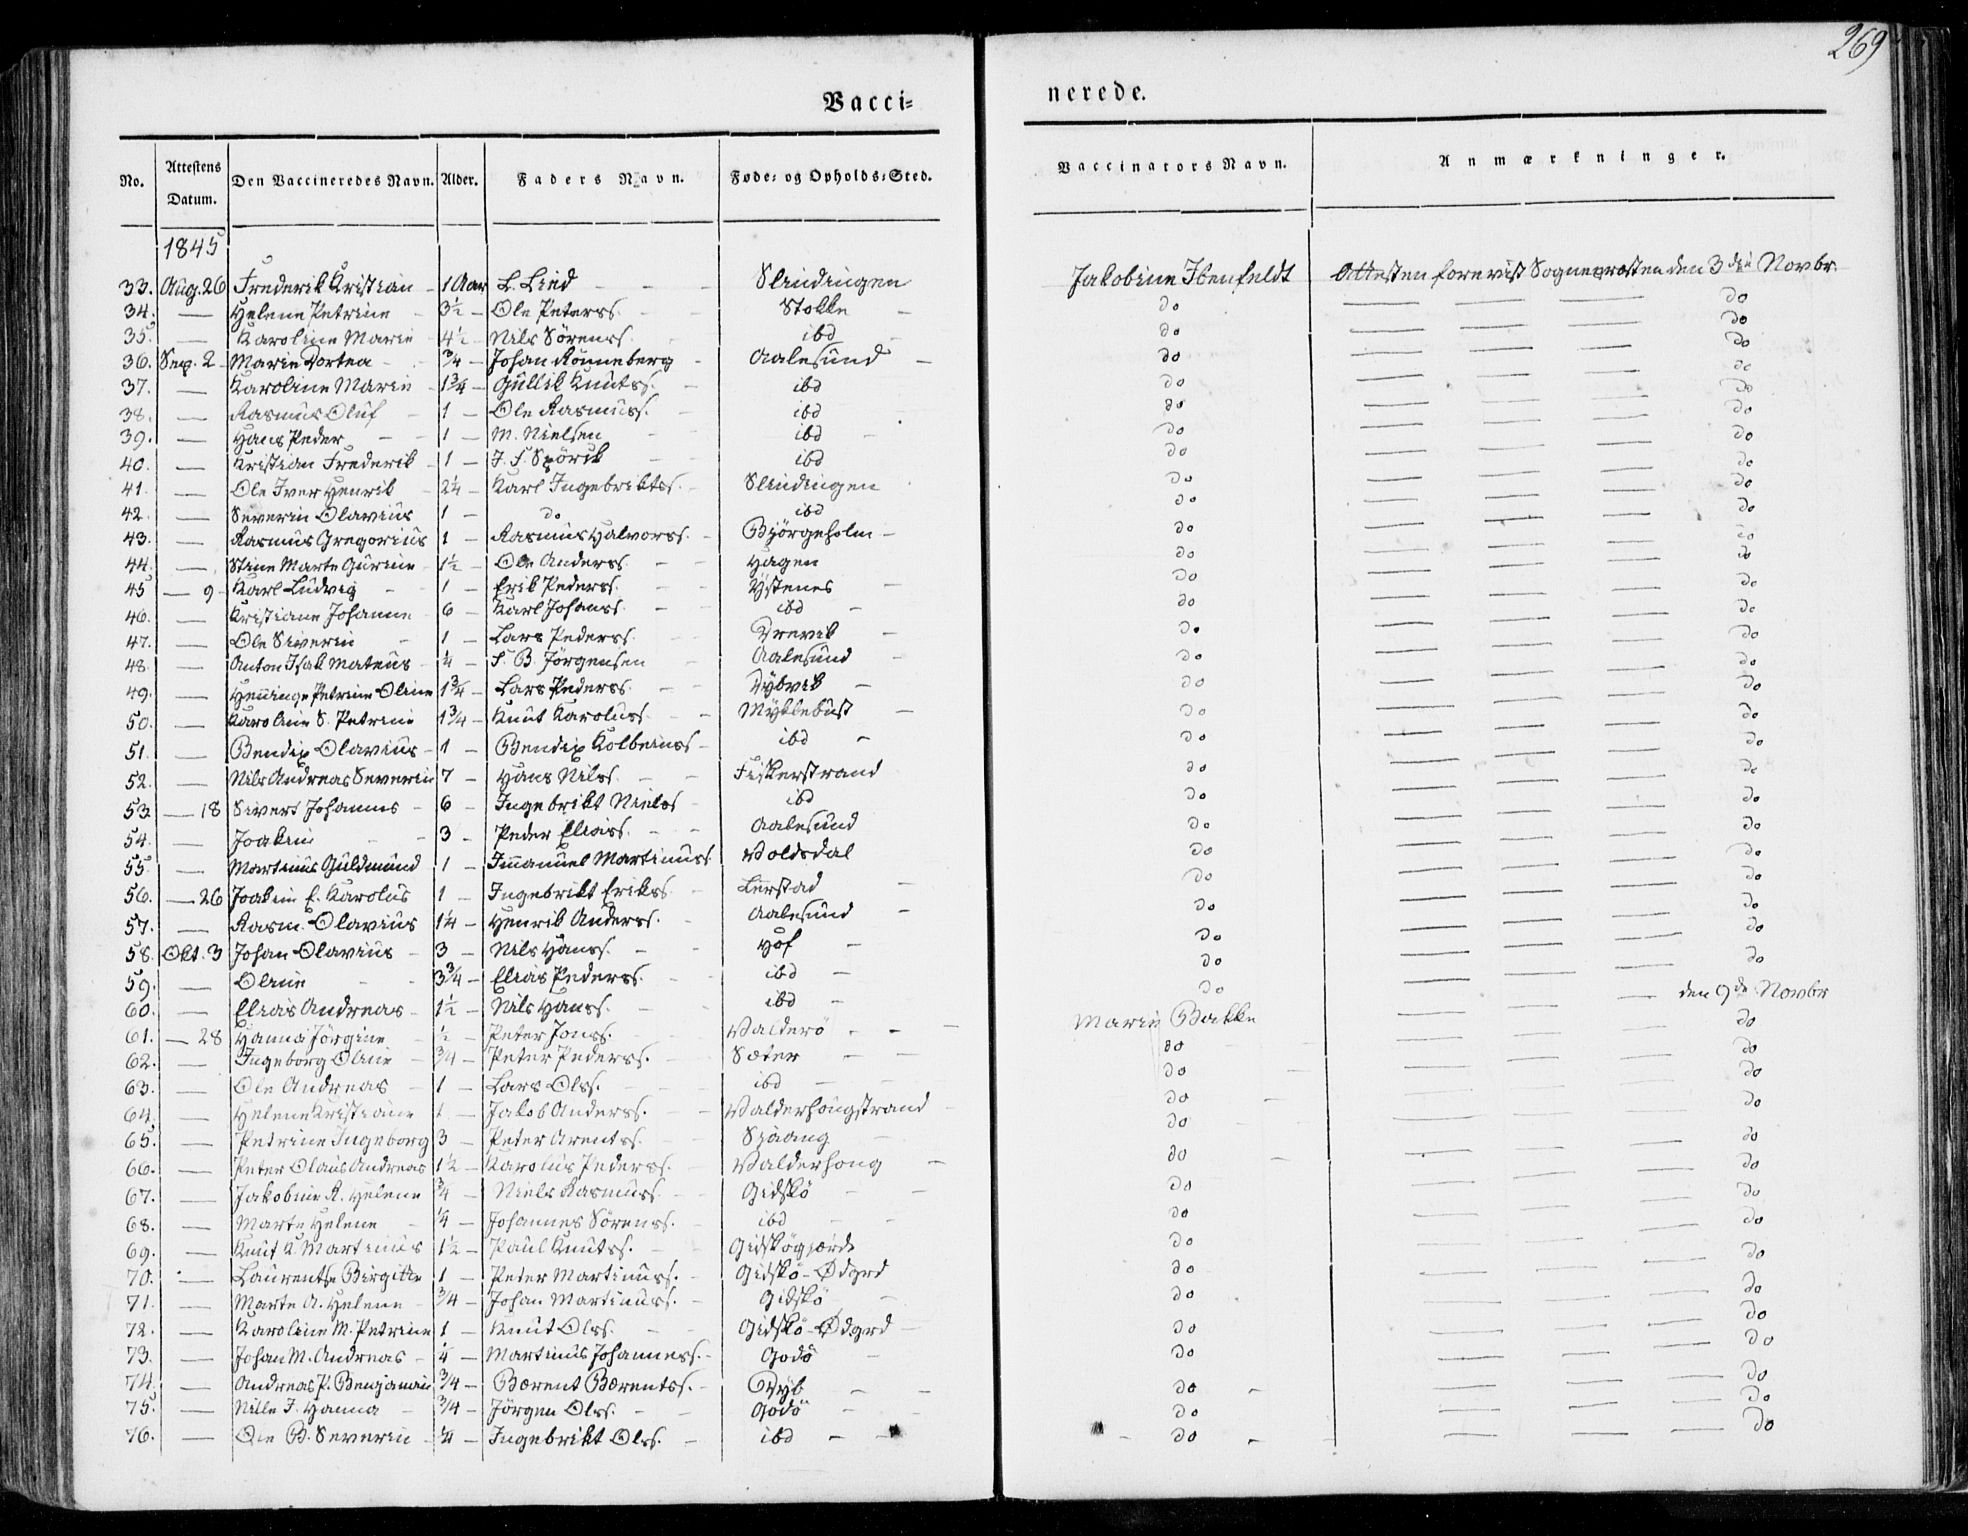 269
Vacci= nerede.
No. Attestens Datum. Den Vaccineredes Navn. Alder. Faders Navn. Føde= og Opholds=Sted. Vaccinators Navn. Anmærkninger.
1845
33. Aug. 26 Frederik Kristian - 1 Aar L. Lied - - - Slindingen Jakobine Ibenfeldt Attesten forevist Sogneprosten den 3die Novbr.
34. — Helene Petrine - 3½ - Ole Peterss. - - Stokke - do — — — do
35. — Karoline Marie - 4½ - Nils Sörenss. ibd do — — — do
36. Sep. 2 - Marie Dortea - ¾ - Johan Rönneberg - Aalesund - do — — — do
37. — Karoline Marie - 1¾ - Gullik Knutss. - ibd do — — — do
38. — Rasmus Oluf - 1 - Ole Rasmuss. - ibd do — — — do
39. — Hans Peder - - 1 - M. Nielsen - ibd - do — — — do
40. — Kristian Frederik - 1 - J. S. Spörik - ibd do — — — do
41. — Ole Iver Henrik - 2¼ - Karl Ingebriktss. - Slindingen do — — — do
42. — Severin Olavius 1 - do ibd do — — — do
43. — Rasmus Gregorius 1 - Rasmus Halvorss. - Bjørgeholm - do — — — do
44. — Stine Marte Gurine - 1½ - Ole Anderss. - - Hagen do — — — do
45 — 9 - Karl Ludvig - 1 - Erik Pederss. - Ystenes - do — — — do
46. — Kristiane Johanne - 6 - Karl Johanss. - ibd - do — — — do
47. — Ole Siverin - 1 - Lars Pederss. - - do — — — do
48. — Anton Isak Mateus - ¼ - S. B. Jörgensen - Aalesund - do — — — do
49. — Henninge Petrine Oline 1¾ - Lars Pederss. - - Dybvik - do — — — do
50. — Karoline S. Petrine 1¾ - Knut Karoluss. - - Myklebust - do — — — do
51. — Bendix Olavius - 1 - Bendix Kolbeinss - ibd - do — — — do
52. — Nils Andreas Severin 7 - Hans Nilss. - - Fiskerstrand do — — — do
53 — 18 Sivert Johannes - 6 - Ingebrikt Nielss - ibd do — — — do
54. — Joakim - 3 - Peder Eliass. - - Aalesund do — — — do
55. — Martinus Guldmund 1 - Immanuel Martinuss Voldsdal do — — — do
56. — 26 Joakim E. Karolus 1 - Ingebrikt Erikss. - Lerstad - do — — — do
57. — Rasm. Olavius 1¼ - Henrik Anderss. - Aalesund - do — — — do
58. Okt. 3 Johan Olavius - 3 - Nils Hanss. - - Hof - do — — — do
59. — Oline - - 3¾ - Elias Pederss. - ibd - do — — — do
60. — Elias Andreas - 1½ - Nils Hanss. - ibd - do — — — den 9de Novbr
61. — 28 Hanna Jörgine - ½ - Peter Jonss. - Valderö - - - Marie Bakke — — — do
62. — Ingeborg Oline - ¾ - Peter Pederss. - Sæter - - do — — — do
63. — Ole Andreas - 1 - Lars Olss. - - ibd - - do — — — do
64. — Helene Kristiane 1 - Jakob Anderss. - - Valderhougstrand - do — — — do
65. — Petrine Ingeborg 3 - Peter Arentss. - Sjöang - do — — — do
66. — Peter Olaus Andreas 1½ - Karolus Pederss. - Valderhoug - do — — — do
67. — Jakobine R. Helene ¾ - Niels Rasmuss. - Gidskö - - do — — — do
68. — Marte Helene - ¼ - Johannes Sörenss. - ibd - - do — — — do
69. — Knut K. Martinus 1½ - Paul Knutss. - Gidskögjærde do — — — do
70. — Laurentse Birgitte 1 - Peter Martinuss. - Gidskö-Ødgrd do — — — do
71. — Marte A. Helene - ¾ - Johan Martinuss. - Gidskö - do — — — do
72. — Karoline M. Petrine 1 - Knut Olss. - - Gidskö-Ødgrd - do — — — do
73. — Johan M. Andreas - ¼ - Martinus Johanness. - Godö - do — — — do
74. — Andreas P. Benjamin ¾ - Bærent Bærentss. - Dyb - - do - — — — do
75. — Nille J. Hanna - ¾ - Jörgen Olss. - - Godö - - do — — — do
76. — Ole B. Severin - ¼ - Ingebrikt Olss. - ibd - - do - — — — do